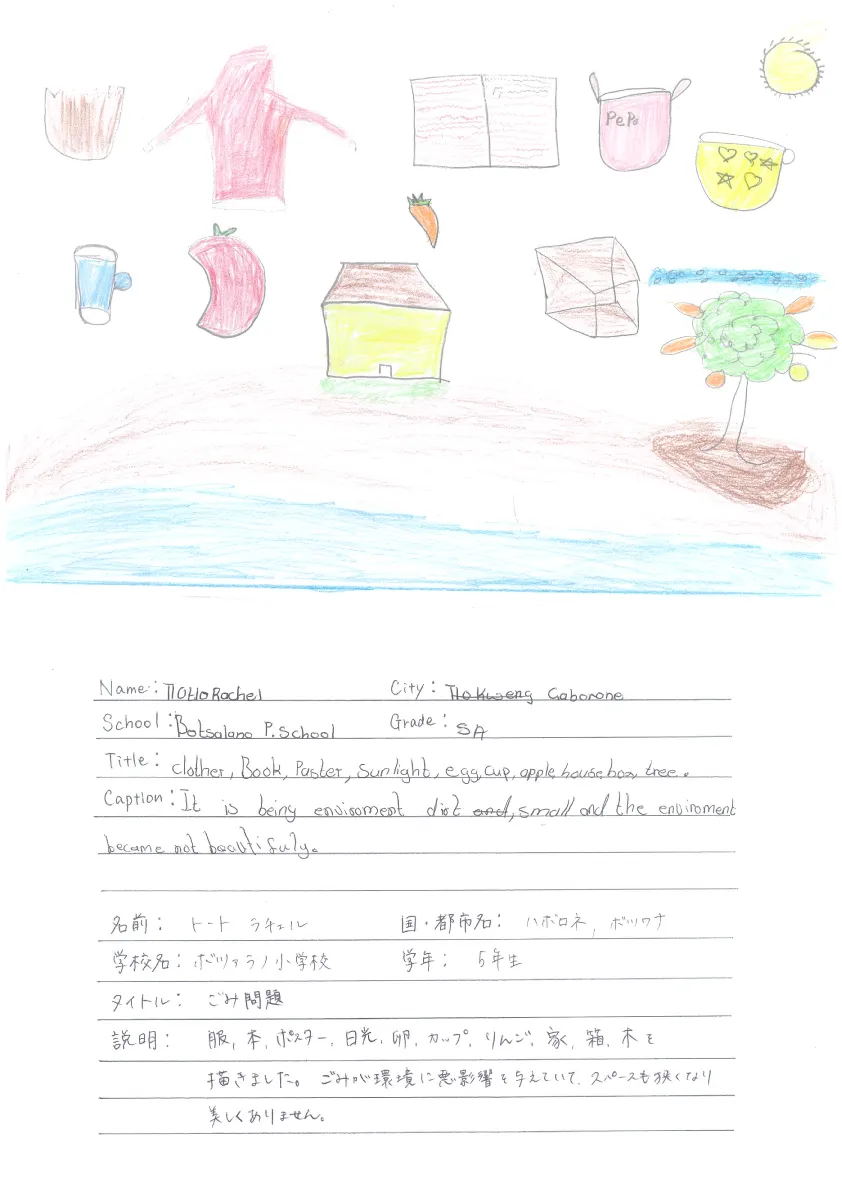 PePs
Name: Tlotlo Rachel City: Tlokweng Gaborone
School: Botsalano P. School Grade: 5A
Title: clother, Book, Paster, Sunlight, egg, cup, apple house box tree.
Caption: It is being enviroment dirt and, small and the enviroment
became not beautifuly.
名前： トート ラチェル 国・都市名： ハボロネ, ボツワナ
学校名： ボツァラノ小学校 学年： 5年生
タイトル： ごみ問題
説明： 服, 本, ポスター, 日光, 卵, カップ, りんご, 家, 箱, 木を
描きました。 ごみが環境に悪影響を与えていて、スペースも狭くなり
美しくありません。